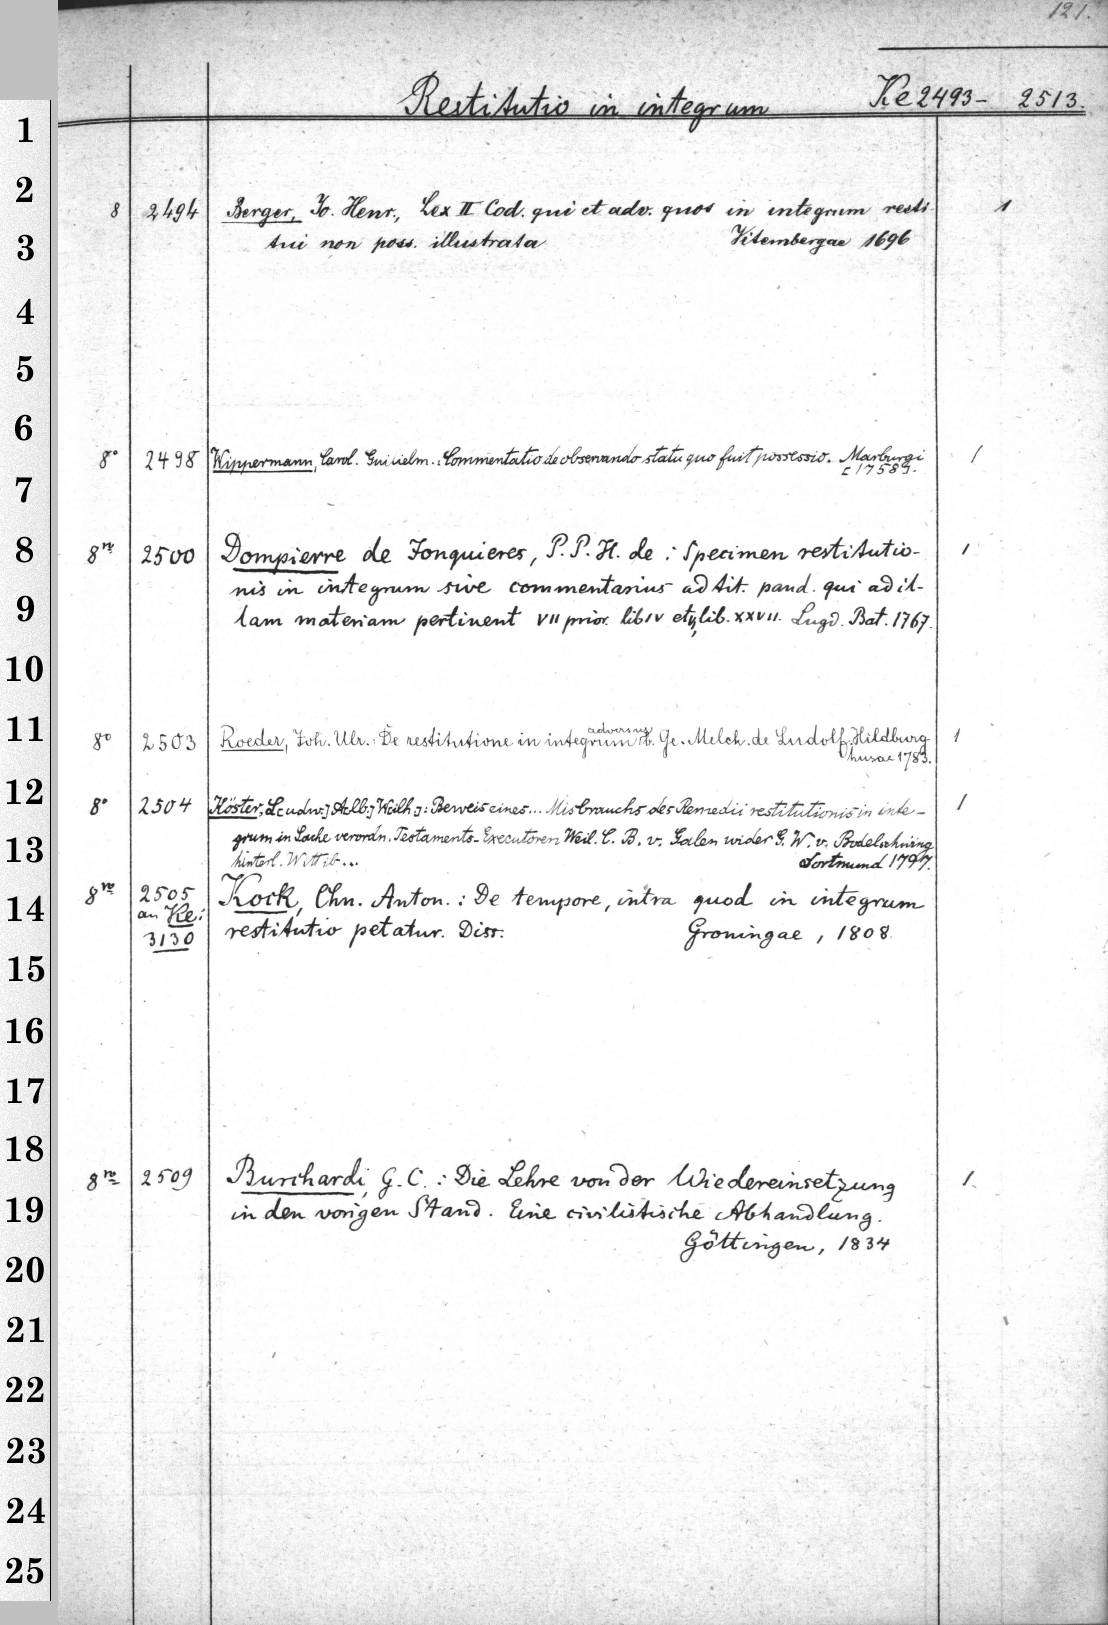 121.
Restitutio in integrum Ke 2493- 2513.
1
2
8 2494 Berger, Jo. Henr., Lex II Cod. qui et adv. quos in integrum resti- 1
3
tui non poss. illustrata Vitembergae 1696
4
5
6
8° 2498 Wippermann, Carol. Guilielm.: Commentatio de observando statu quo fuit possessio. Marburgi 1
[1758].
7
8
8vo 2500 Dompierre de Jonquieres, P. P. H. de: Specimen restitutio- 1
nis in integrum sive commentarius ad tit. pand. qui ad il-
9
lam materiam pertinent VII prior. lib IV et lib. XXVII. Lugd. Bat. 1767.
10
11
adversus
8° 2503 Roeder, Joh. Ulr.: De restitutione in integrum b. Ge. Melch. de Ludolf. Hildburg- 1
husae 1783.
12
8° 2504 Köster, L[udw.] A[lb.] W[ilh.]: Beweis eines... Misbrauchs des Remedii restitutionis in inte- 1
13
grum in Sache verordn. Testaments-Executoren Weil. C. B. v. Galen wider G. W. v. Bodelschwing
hinterl. Wittib... Dortmund 1797.
14
8vo 2505 Kock, Chn. Anton.: De tempore, intra quod in integrum
an Ke:
3130 restitutio petatur. Diss. Groningae, 1808.
15
16
17
18
8vo 2509 Burchardi, G. C.: Die Lehre von der Wiedereinsetzung 1.
19
in den vorigen Stand. Eine civilistische Abhandlung.
Göttingen, 1834
20
21
22
23
24
25